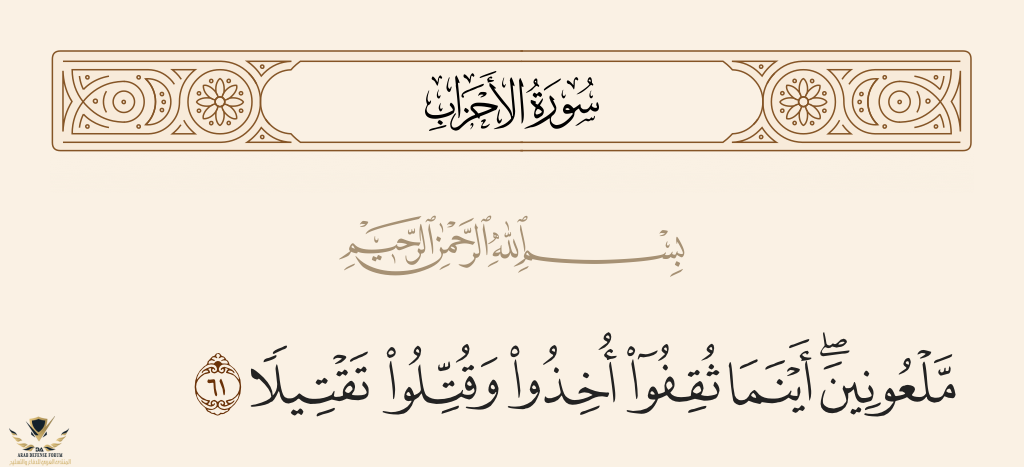 سُورَةُ الأَحْزَابِ
بِسْمِ ٱللَّهِ ٱلرَّحْمَٰنِ ٱلرَّحِيمِ
مَّلْعُونِينَ ۖ أَيْنَمَا ثُقِفُوٓا۟ أُخِذُوا۟ وَقُتِّلُوا۟ تَقْتِيلًا ٦١
ARAB DEFENSE FORUM